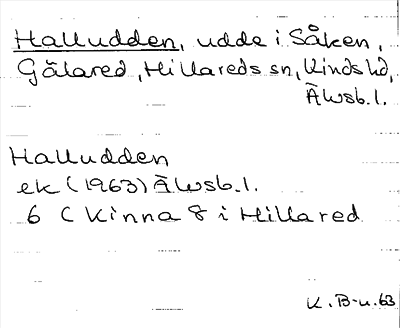 Halludden, udde i Såken,
Gälared, Hillareds sn, Kinds hd,
Älvsb. l.
Halludden
ek (1963) Älvsb. l.
6 C Kinna 8 i Hillared
K. B-u. 63